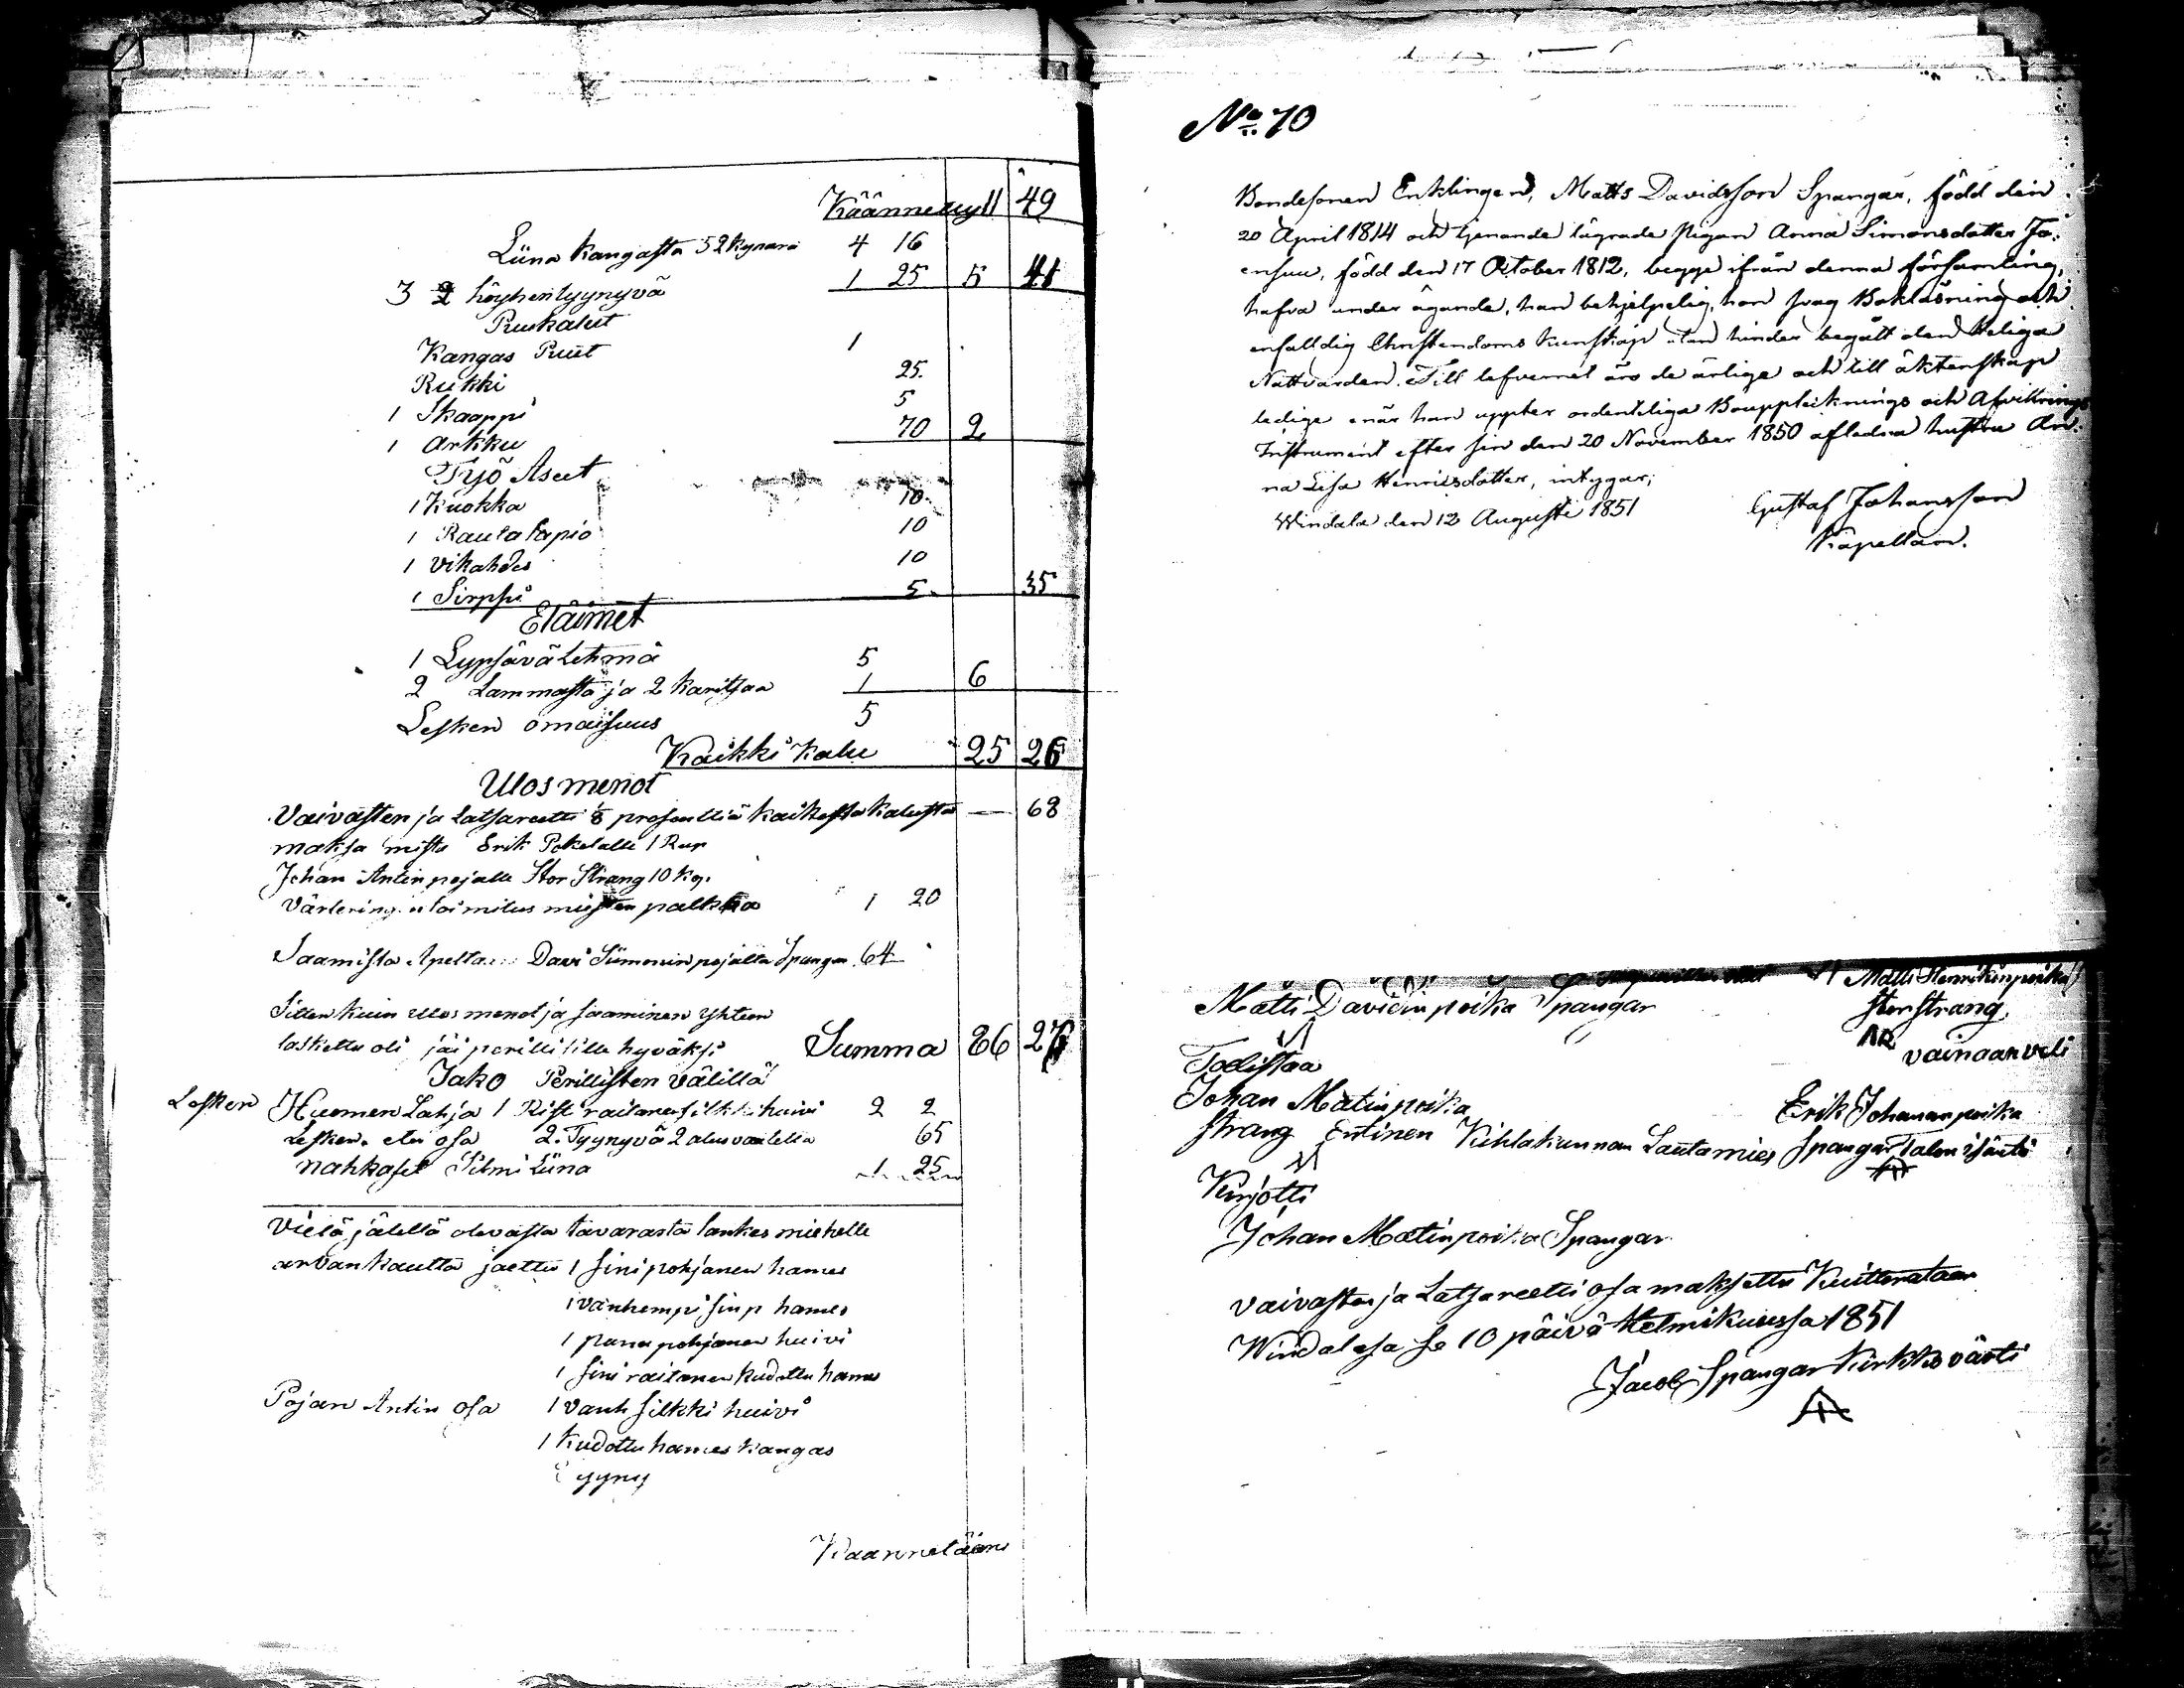 Käännetty 11 49
Liina Kangasta 52 kynärä 4 16
3 2 höyhentyynyvä 1 25 5 41
Puukalut
Kangas Puut 1
Rukki 25
1 Skaappi 5
1 arkku 70 2
Työ Aseet
1 Kuokka 10
1 Rautalapio 10
1 Vikahdes 10
1 Sirppi 5 35
Eläimet
1 Lypsävä Lehmä 5
2 Lammasta ja 2 Karitsaa 1 6
Lesken omaisuus 5
Kaikki Kalu 25 26
Ulosmenot
Vaivasten ja Latsareetti 1/8 prosenttiä kaikesta kalusta — 68
maksa mista Erik Pokelalle 1 Rup
Johan Antinpojalle Stor Strang 10 kp.
Värlering toimitus miesten palkka 1 20
Saamista Davi Siimonin pojalta Spangar 64
Sitten kuin ulosmenot ja saaminen yhteen
laskettu oli jäi perillisille hyväksi Summa 86 27
Jako Perillisten välillä
Lesken Huomen Lahja 1 Risti raitanen silkki huivi 2 2
Lesken etu osa 2 Tyynyvä 65
nahkaset Silmi Liina 1 25
Vielä jälellä olevasta tavarasta lankes miehelle
arvan kautta jaettu 1 sini pohjanen hames
1 vanhempi sinp hames
1 puna pohjanen huivi
1 sini raitanen kudottu hames
Pojan Antin osa 1 vanh silkki huivi
1 kudottu hames kangas
Käännetään
No 70
Bondesonen Enklingen, Matts Davidsson Spangar, född den
20 April 1814 och tjenande lägrade pigan Anna Simonsdotter Jo-
ensuu, född den 17 October 1812, begge ifrån denna församling,
hafva under ägande, han behjelpelig, hon svag Bokläsning och
enfalldig Christendoms kunskap utan hinder begått den Heliga
Nattvarden. Till lefvernet äro de ärlige och till äktenskap
ledige enär han uppter ordentliga Bouppteknings och Afvittrings
Instrument efter sin den 20 November 1850 afledna hustru An-
na Lisa Henricsdotter, intygar;
Windala den 12 Augusti 1851 Gustaf Johansson
Kapellan.
Matti Henrikinpoika
Matti Davidinpoika Spangar Storstrang
vainaan veli
Todistaa
Johan Matinpoika Erik Johananpoika
Strang Entinen Kihlakunnan Lautamies Spangar Talon isäntä
Kirjotti
Johan Matinpoika Spangar
Vaivasten ja Latsareetti osa maksettu Kuitterataan
Windalasa se 10 päivä Helmikuusssa 1851
Jacob Spangar Kirkko värti